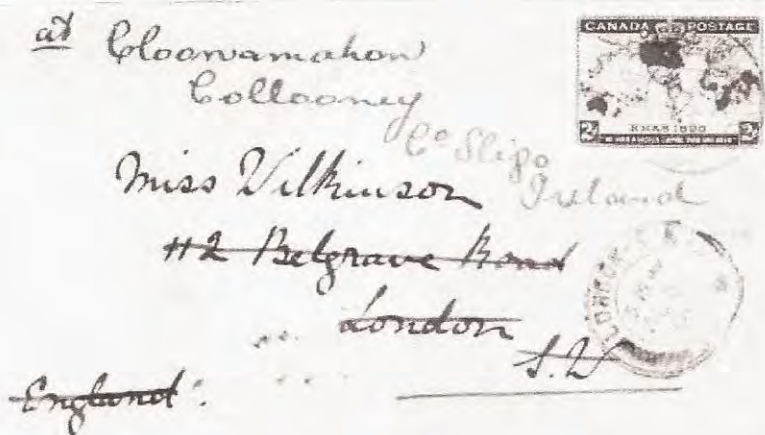 at Cloonamahon
Collooney
Co Sligo
Ireland
CANADA POSTAGE
XMAS 1898
2 2
Miss Wilkinson
112 Belgrave Road
London
S.W
England.
LONDON